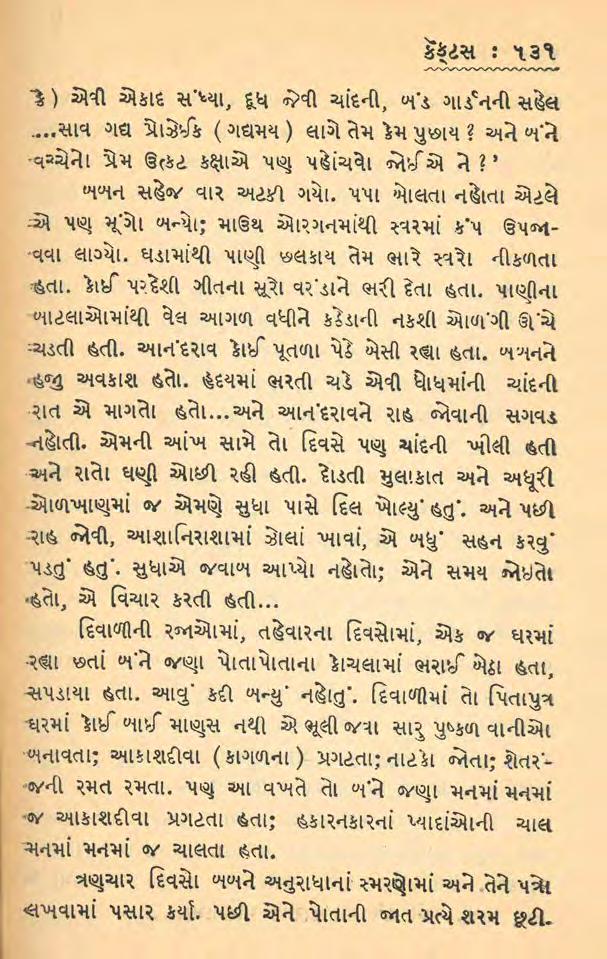 કૅક્ટસ : ૫૩૧
કે ) એવી એકાદ સંધ્યા, દૂધ જેવી ચાંદની, બંડ ગાર્ડનની સહેલ
....સાવ ગદ્ય પ્રોઝેઈક ( ગદ્યમય ) લાગે તેમ કેમ પુછાય ? અને બંને
વચ્ચેનો પ્રેમ ઉત્કટ કક્ષાએ પણ પહોંચવો જોઈએ ને ? ’
બબન સહેજ વાર અટકી ગયો. પપા બોલતા નહોતા એટલે
એ પણ મૂંગો બન્યો; માઉથ ઓરગનમાંથી સ્વરમાં કંપ ઉપજા-
વવા લાગ્યો. ઘડામાંથી પાણી છલકાય તેમ ભારે સ્વરો નીકળતા
હતા. કોઈ પરદેશી ગીતના સૂરો વરંડાને ભરી દેતા હતા. પાણીના
બાટલાઓમાંથી વેલ આગળ વધીને કઠેડાની નકશી ઓળંગી ઊંચે
ચડતી હતી. આનંદરાવ કોઈ પૂતળા પેઠે બેસી રહ્યા હતા. બબનને
હજુ અવકાશ હતો. હૃદયમાં ભરતી ચડે એવી ધોધમાંની ચાંદની
રાત એ માગતો હતો...અને આનંદરાવને રાહ જોવાની સગવડ
નહોતી. એમની આંખ સામે તો દિવસે પણ ચાંદની ખીલી હતી
અને રાતો ઘણી ઓછી રહી હતી. દોડતી મુલાકાત અને અધૂરી
ઓળખાણમાં જ એમણે સુધા પાસે દિલ ખોલ્યું હતું. અને પછી
રાહ જોવી, આશાનિરાશામાં ઝોલાં ખાવાં, એ બધું સહન કરવું
પડતું હતું. સુધાએ જવાબ આપ્યો નહોતો; એને સમય જોઇતો
હતો, એ વિચાર કરતી હતી...
દિવાળીની રજાઓમાં, તહેવારના દિવસોમાં, એક જ ઘરમાં
રહ્યા છતાં બંને જણા પોતાપોતાના કોચલામાં ભરાઈ બેઠા હતા,
સપડાયા હતા. આવું કદી બન્યું નહોતું. દિવાળીમાં તો પિતાપુત્ર
ઘરમાં કોઈ બાઈ માણસ નથી એ ભૂલી જવા સારુ પુષ્કળ વાનીઓ
બનાવતા; આકાશદીવા ( કાગળના ) પ્રગટતા; નાટકો જોતા; શેતરં-
જની રમત રમતા. પણ આ વખતે તો બંને જણા મનમાં મનમાં
જ આકાશદીવા પ્રગટતા હતા; હકારનકારનાં પ્યાદાંઓની ચાલ
મનમાં મનમાં જ ચાલતા હતા.
ત્રણચાર દિવસો બબને અનુરાધાનાં સ્મરણોમાં અને તેને પત્રો
લખવામાં પસાર કર્યા. પછી એને પોતાની જાત પ્રત્યે શરમ છૂટી.